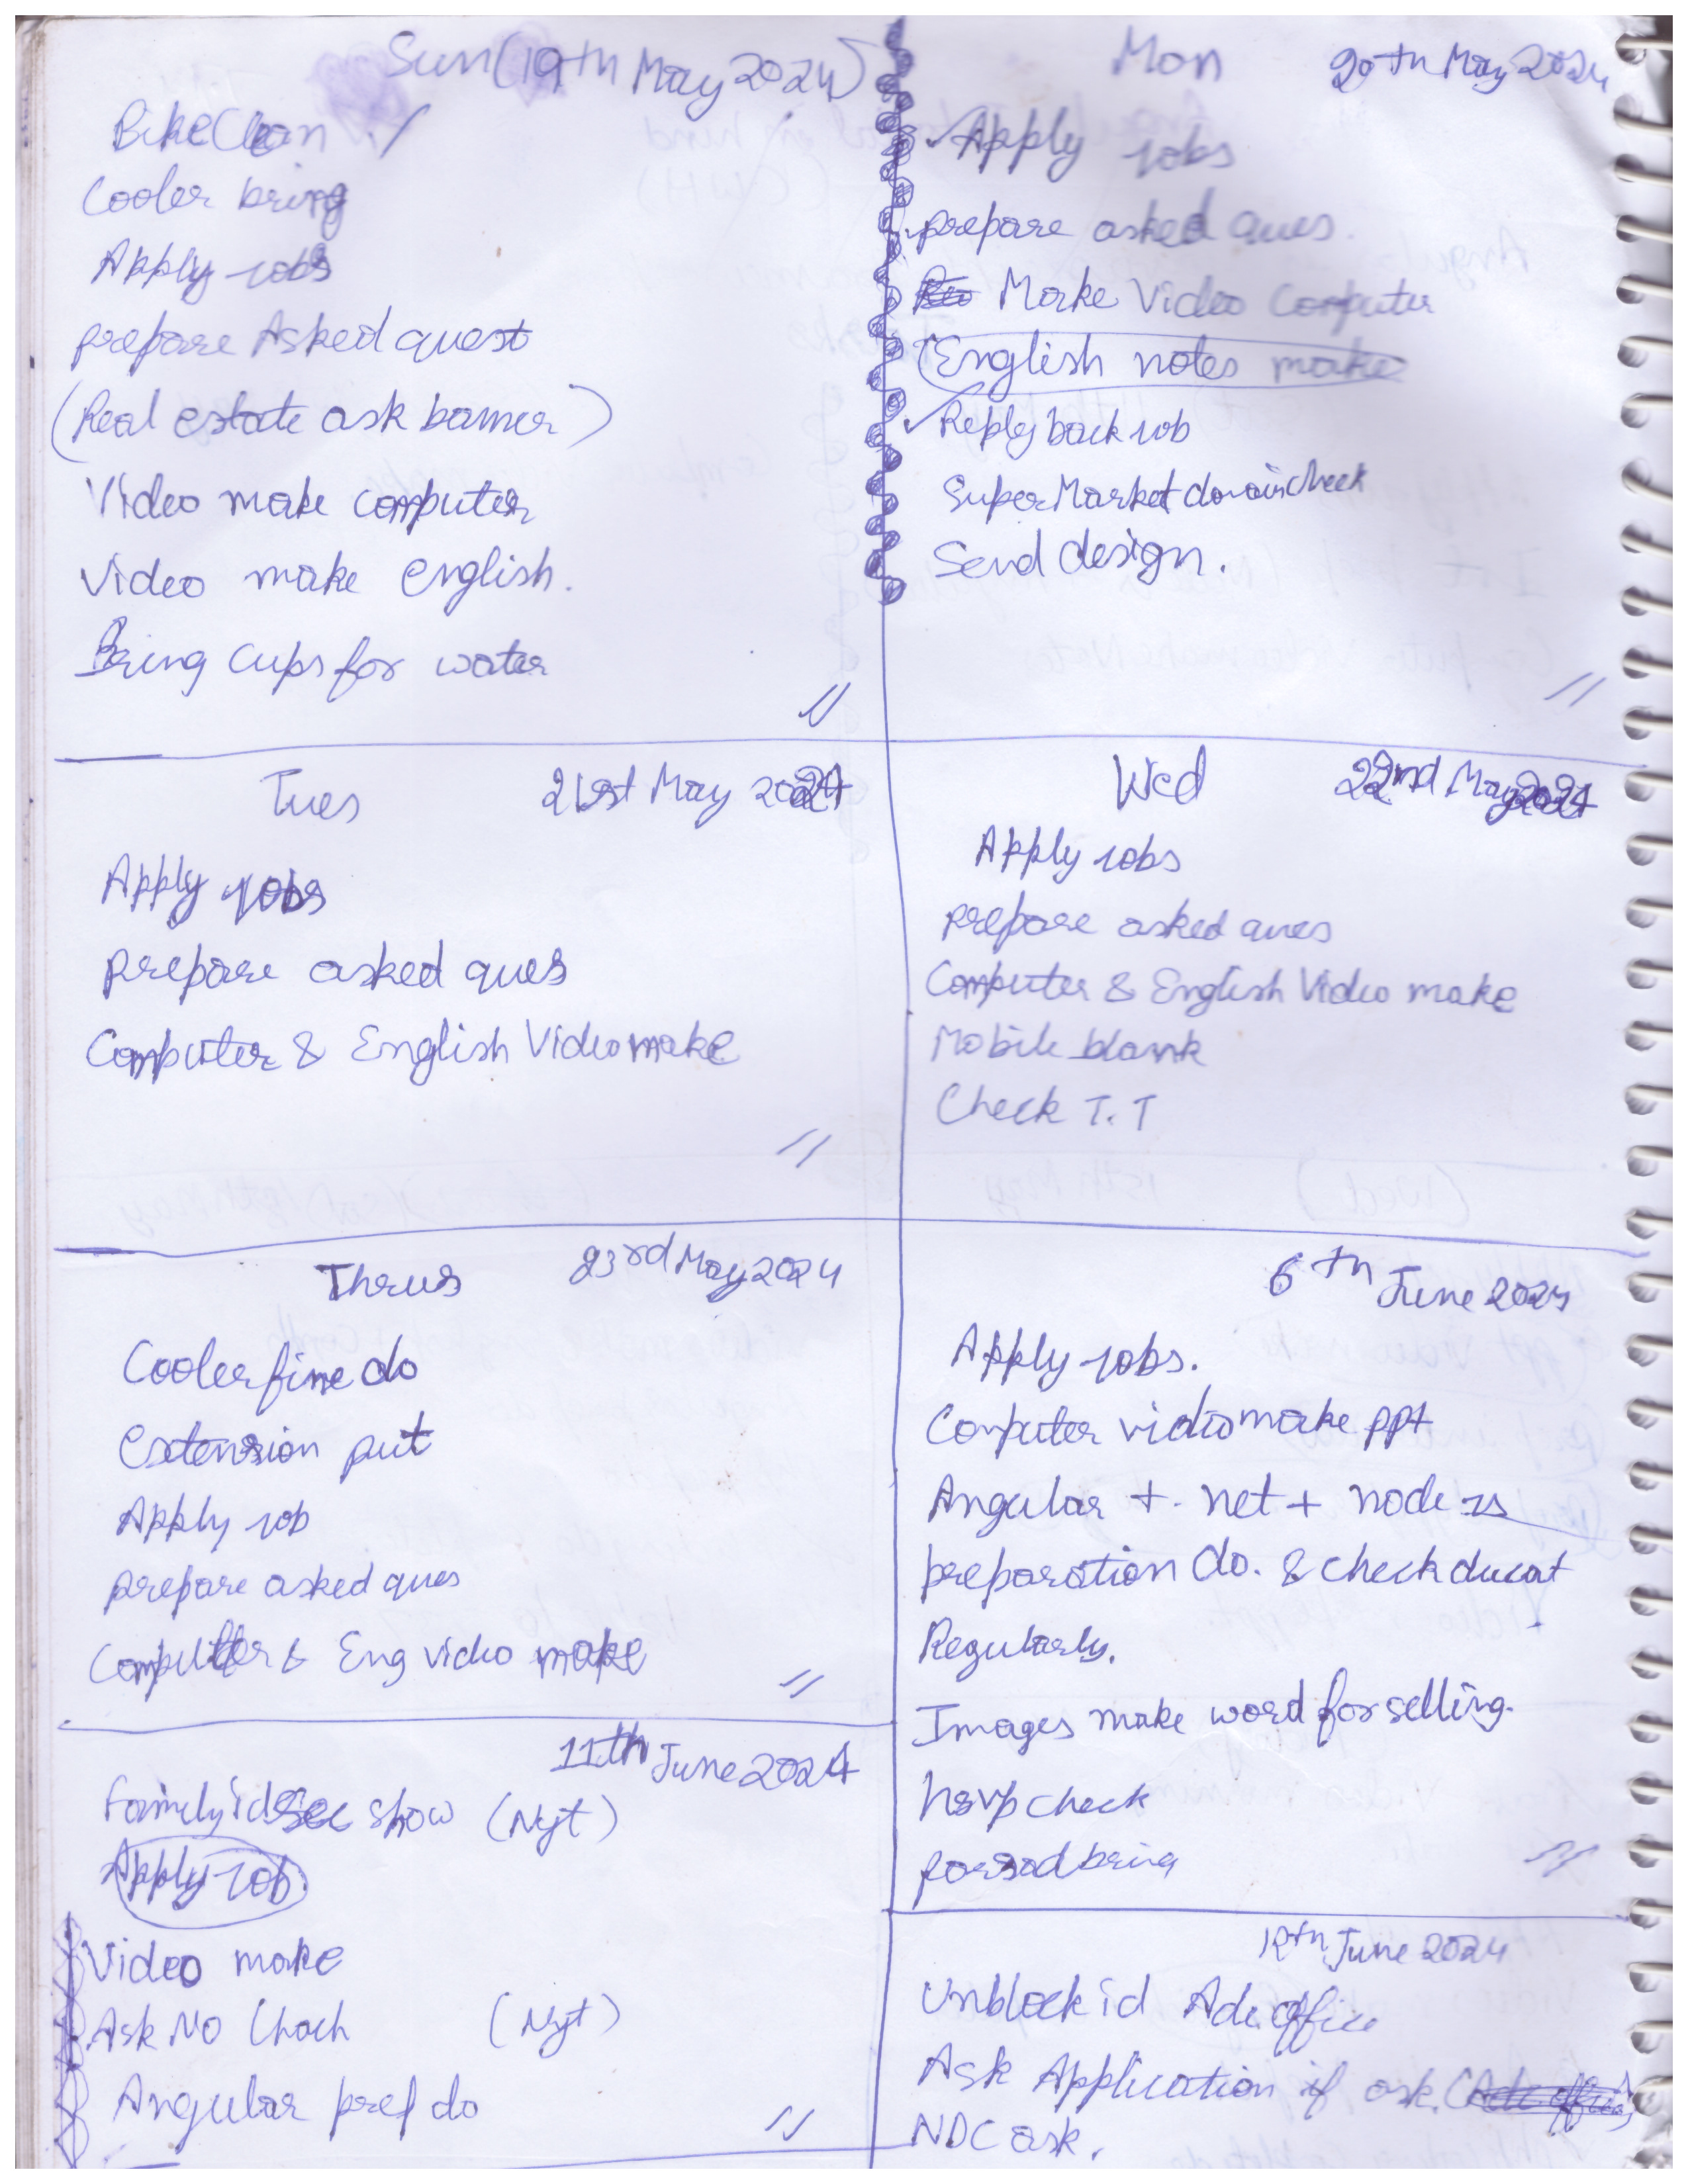 Sun (19th May 2024)
Bike Clean ✓
Cooler bring
Apply jobs
prepare Asked quest
(Real estate ask banner)
Video make computer
Video make english.
Bring cups for water
Mon 20th May 2024
✓ Apply jobs
prepare asked ques.
Make Video Computer
English notes make
✓ Reply back job
Super Market domain check
Send design.
Tues 21st May 2024
Apply jobs
prepare asked ques
Computer & English Video make
Wed 22nd May 2024
Apply jobs
prepare asked ques
Computer & English Video make
Mobile blank
Check T.T
Thrus 23rd May 2024
Cooler fine do
extension put
Apply job
prepare asked ques
Computer & Eng video make
6th June 2024
Apply jobs.
Computer video make ppt
Angular + .net + node Js
preparation do. & check ducat
Regularly.
Images make word for selling.
hsvp check
parsad bring
11th June 2024
Family id see show (Nyt)
Apply job.
Video make
Ask No Chach (Nyt)
Angular prep do
12th June 2024
Unblock id Adc office
Ask Application if ask.
NDC ask.